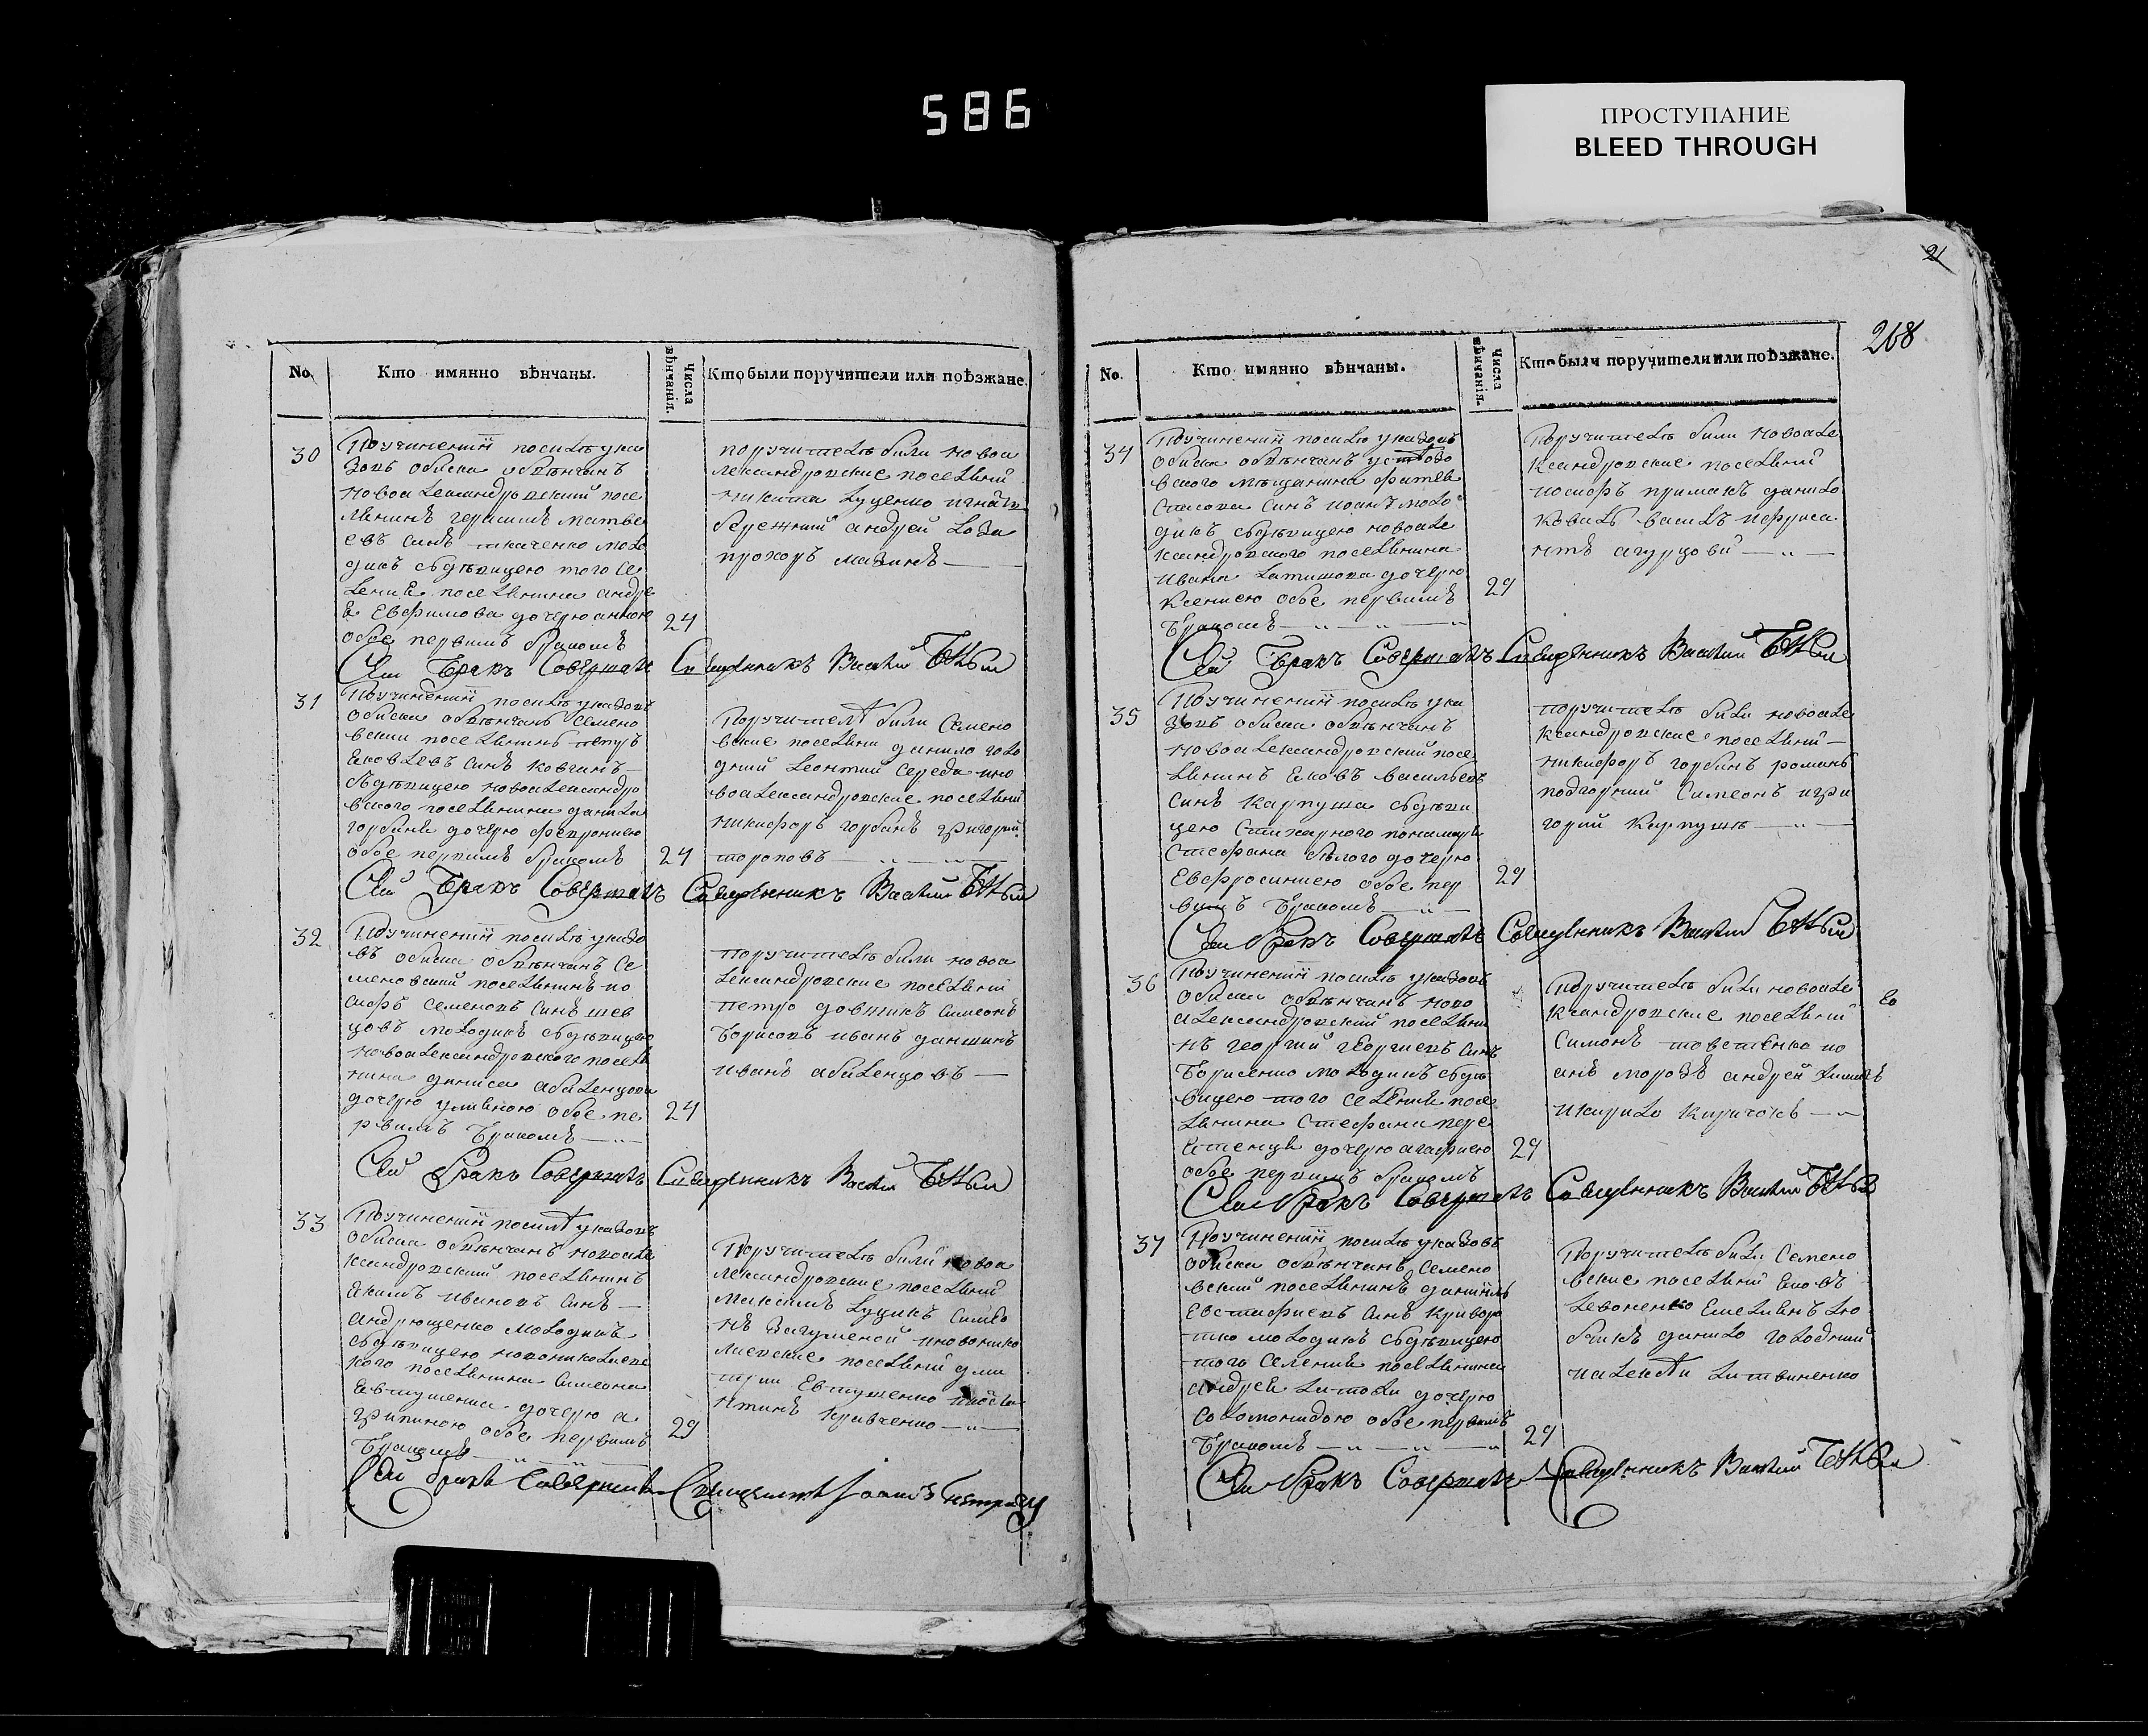 586
ПРОСТУПАНИЕ
BLEED THROUGH
21
268
No. Кто имянно вѣнчаны. Числа вѣнчанія. Кто были поручители или поѣзжане.
30
Поучиненіи посилѣ ука
зовъ обиска обвѣнчанъ
новоалександровский посе
лѣнинъ герасимъ матве
евъ синъ ткаченко моло
дикъ сбдѣвицею того се
ления поселѣнина андре
я Евфимова дочерю анною
обое первимъ бракомъ
24
поручителѣ били новоа
лександровские поселѣний
никита Луценко игнатъ
бережний андрей Лоза
прохоръ мазинъ
Сей Бракъ Совершалъ Священникъ Василий
31
Поучиненіи посилѣ указовъ
обиска обвѣнчанъ Семено
вский поселѣнинъ петръ
Яковлевъ синъ ковчинъ
сбдѣвицею новоалександро
вского поселѣнина данила
горбаня дочерю февронию
обое первимъ бракомъ
24
Поручителѣ били Семено
вские поселѣни данило голо
дний Леонтий Середа ино
воалександровские поселѣний
никифоръ горбанъ григорий
тороповъ
Сей Бракъ Совершалъ Священникъ Василий
32
Поучиненіи посилѣ указо
въ обиска обвѣнчанъ Се
меновский поселѣнинъ ио
сифъ семеновъ синъ шев
цовъ молодикъ сбдѣвицею
новоалександровского поселѣ
нина дениса
дочерю улияною обое пе
рвимъ бракомъ
24
поручителѣ били новоа
лександровские поселѣний
петро довжикъ симеонъ
Борисовъ иванъ даншинъ
иванъ
Сей бракъ Совершалъ Священникъ Василий
33
Поучиненіи посилѣ указовъ
обиска обвѣнчанъ новоале
ксандровский поселѣнинъ
Якимъ ивановъ синъ
андрющенко молодикъ
сбдѣвицею новониколаевс
кого поселѣнина Симеона
Евтушенка дочерю а
грипиною обое первимъ
бракомъ
29
Поручителѣ били новоа
лександровские поселѣний
Максимъ Луцикъ Симео
нъ инованико
лаевские поселѣний дми
трии Евтушенко
нтинъ кравченко
Сей бракъ Совершилъ Священникъ Иоаннъ
No. Кто имянно вѣнчаны. Числа вѣнчанія. Кто были поручители или поѣзжане.
34
Поучиненіи посилѣ указовъ
обиска обвѣнчанъ
вского мѣщанина
синъ иоанъ моло
дикъ сбдѣвицею новоале
ксандровского поселѣнина
ивана Латишова дочерю
Ксениею обое первимъ
Бракомъ
29
Поручителѣ били новоале
ксандровские поселѣний
иосифъ примакъ данило
Коваль василъ
агурцовй
Сей Бракъ Совершалъ Священникъ Василий
35
Поучиненіи посилѣ ука
зовъ обиска обвѣнчанъ
новоалександровский посе
лѣнинъ Яковъ васильевъ
синъ Карпуша сбдѣви
цею Стихарного пономаря
Стефана бѣлого дочерю
Евфросиниею обое пер
вимъ Бракомъ
29
поручителѣ били новоале
ксандровские поселѣний
никифоръ горбанъ романъ
подгорний Симеонъ игри
горий Карпушѣ
Сей бракъ Совершалъ Священникъ Василий
36
Поучиненіи посилѣ указовъ
обиска обвѣнчанъ ново
александровский поселѣни
нъ георгий георгиевъ синъ
Борисенко молодикъ сбдѣ
вицею того селения посе
лѣнина Стефана пере
дочерю агафиею
обое первимъ бракомъ
29
Поручителѣ били новоале
ксандровские поселѣний
Симонъ товстенко ио
анъ морозъ андрей
икирило киричокъ
Сей бракъ Совершалъ Священникъ Василий
37
Поучиненіи посилѣ указовъ
обиска обвѣнчанъ Семено
вский поселѣнинъ даниилъ
Евстафиевъ синъ криворо
тко молодикъ сбдѣвицею
того селения поселѣнина
андрея дочерю
соломонидою обое первимъ
Бракомъ
29
Поручителѣ били Семено
вские поселѣний Яковъ
Левоненко Емелианъ Лю
бчикъ данило голодний
иалексѣй литвиненко
Сей бракъ Совершалъ Священникъ Василий